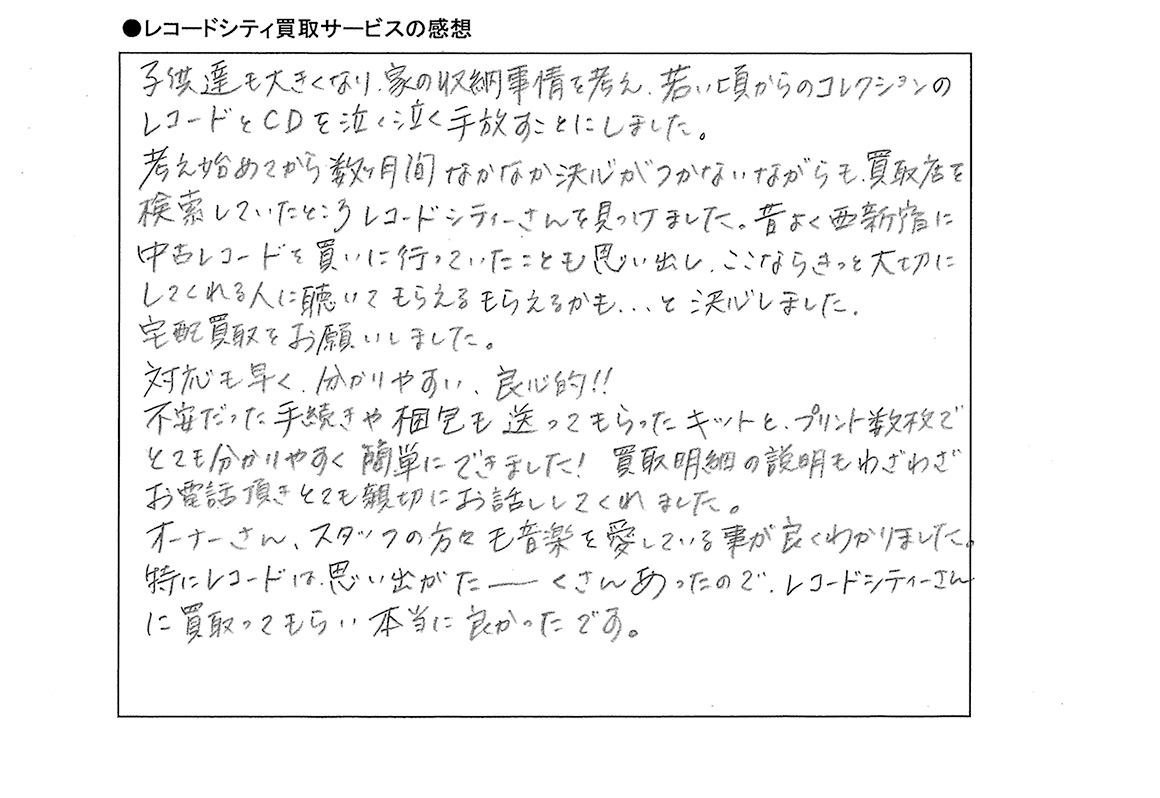 ●レコードシティ買取サービスの感想
子供達も大きくなり、家の収納事情を考え、若い頃からのコレクションの
レコードとCDを泣く泣く手放すことにしました。
考え始めてから数ヶ月間なかなか決心がつかないながらも、買取店を
検索していたところレコードシティーさんを見つけました。昔よく西新宿に
中古レコードを買いに行っていたことも思い出し、ここならきっと大切に
してくれる人に聴いてもらえるもらえるかも...と決心しました。
宅配買取をお願いしました。
対応も早く、分かりやすい、良心的!!
不安だった手続きや梱包も送ってもらったキットと、プリント数枚で
とても分かりやすく簡単にできました!買取明細の説明もわざわざ
お電話頂きとても親切にお話ししてくれました。
オーナーさん、スタッフの方々も音楽を愛している事が良くわかりました。
特にレコードは、思い出がたーーくさんあったので、レコードシティーさん
に買取ってもらい本当に良かったです。